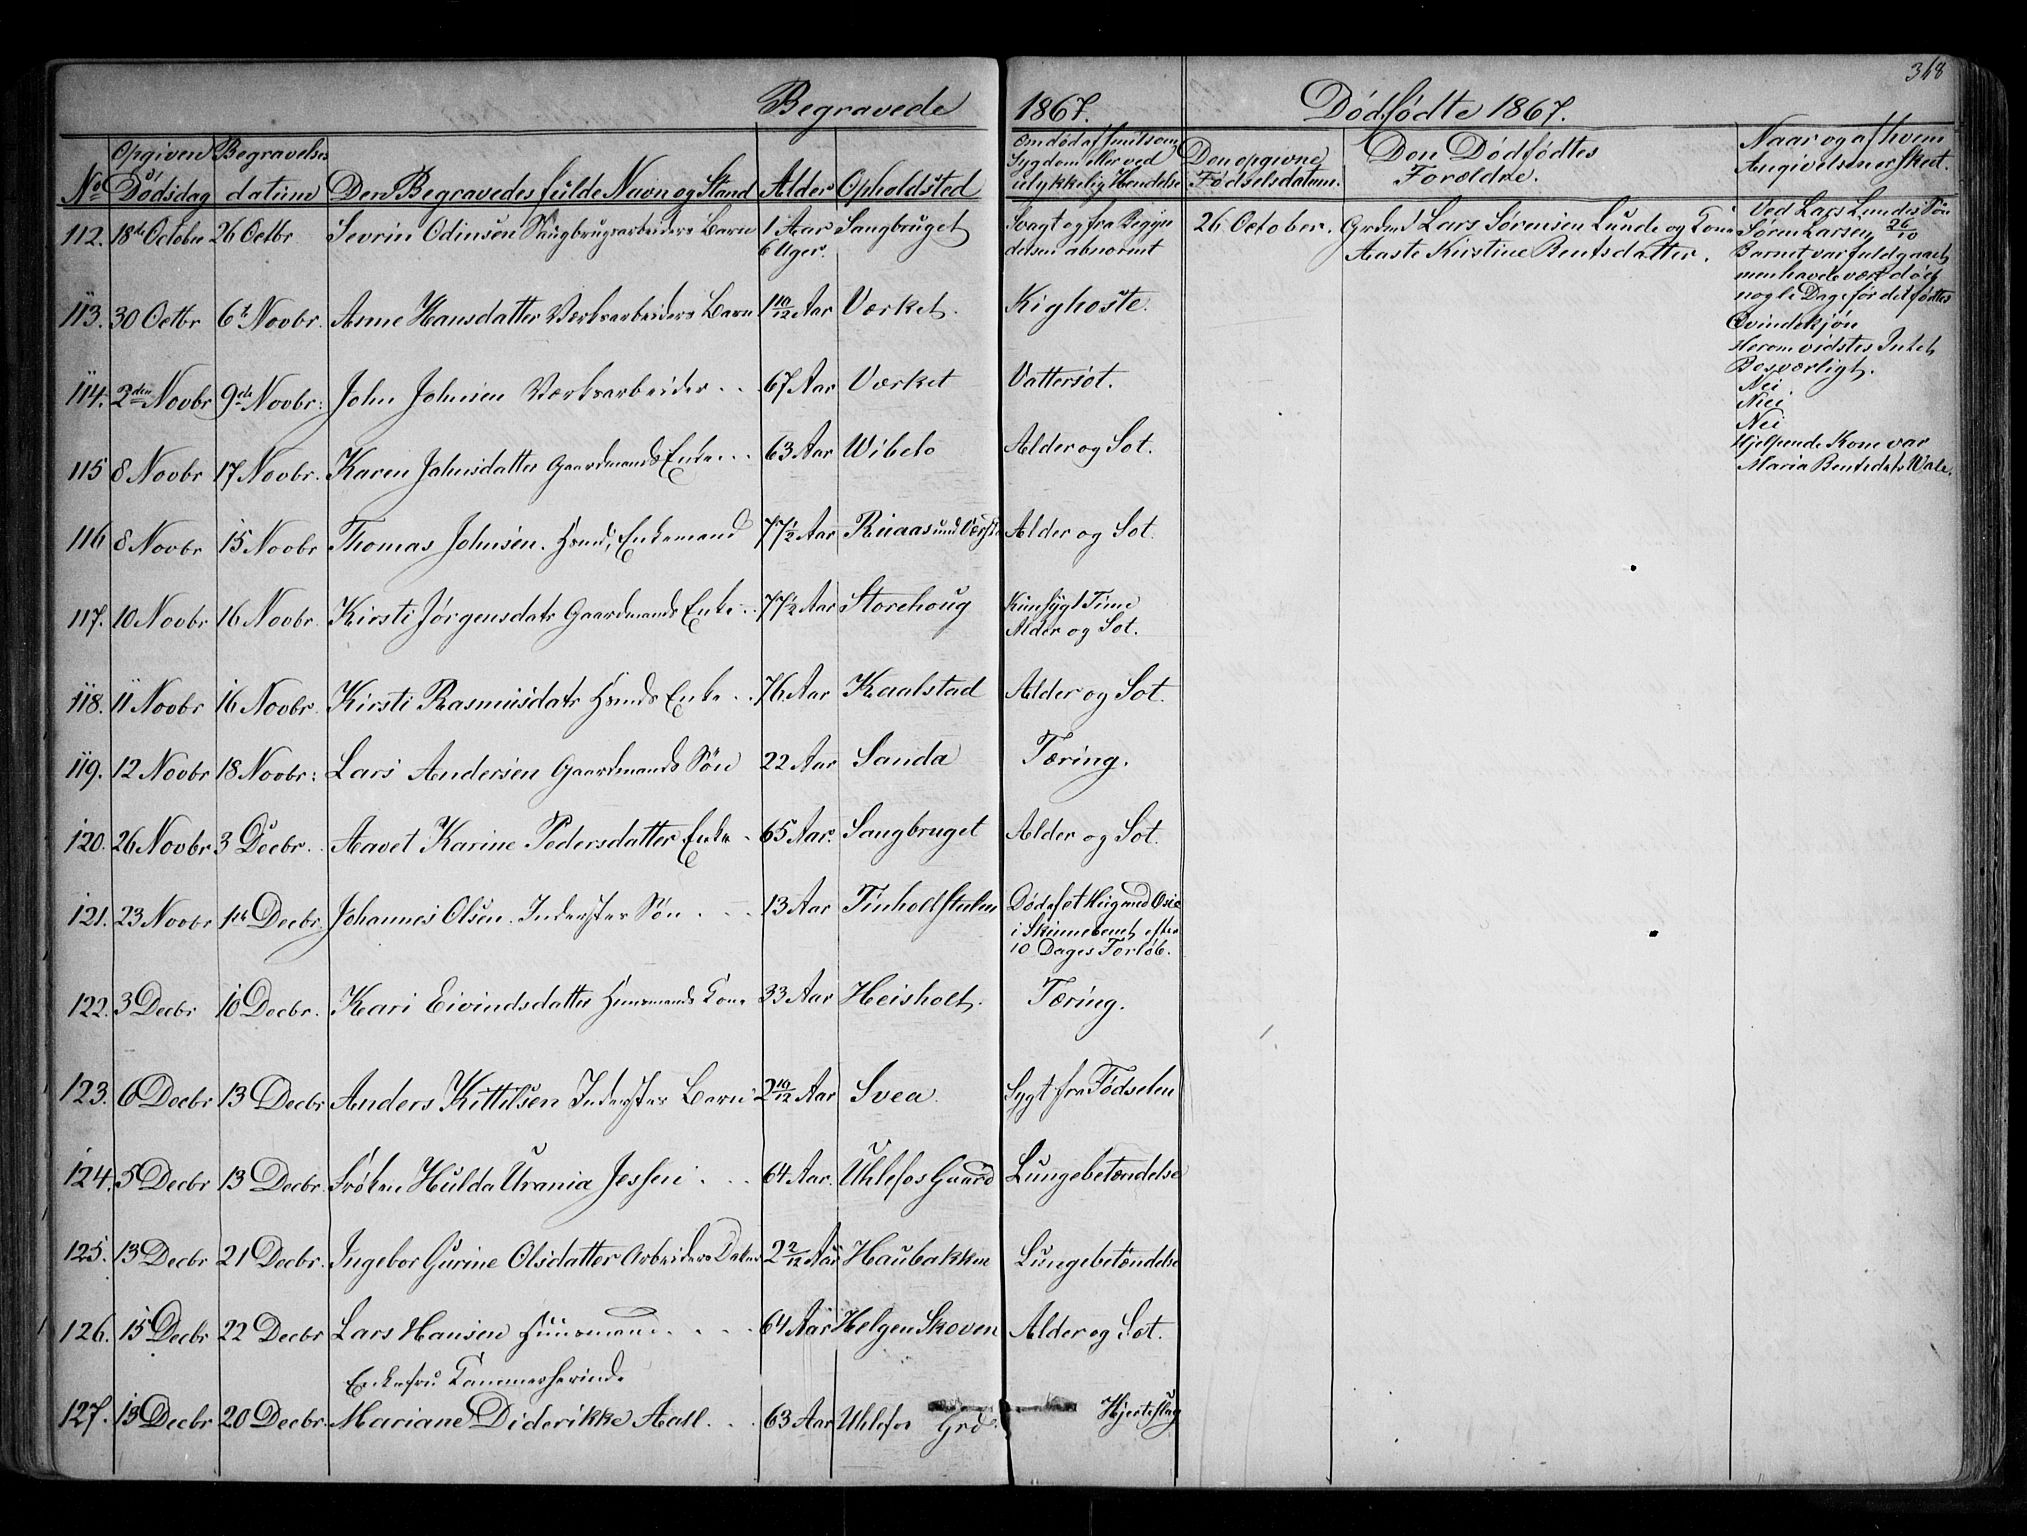 348
Begravede 1867.
Dødfødte 1867.
No
Opgiven Dødsdag
Begravelsesdatum
Den Begravedes fulde Navn og Stand
Alder
Opholdsted
Om død af smitsom Sygdom eller ved ulykkelig Hendelse
Den opgivne Fødselsdatum.
Den Dødfødtes Forældre.
Naar og af hvem Angivelsen er skeet.
112. 18de October 26 Octbr Sevrin Odinsen Saugbrugsarbeiders Barn 1 Aar 6 Uger. Saugbruget Svagt og fra Begyndelsen abnormt
113. 30 Octbr 6te Novbr. Anne Hansdatter Værksarbeiders Barn 1 10/12 Aar Værket. Kighoste.
114. 2den Novbr 9de Novbr: John Johnsen Værksarbeider 67 Aar Værket Vattersot.
115 8 Novbr 17 Novbr. Karen Johnsdatter Gaardmands Enke 63 Aar Wibeto Alder og Sot.
116 8 Novbr 15 Novbr Thomas Johnsen. Hsmd, Enkemand 77 1/2 Aar Ruaas und Værket Alder og Sot.
117. 10 Novbr 16 Novbr. Kirsti Jørgensdatr Gaardmands Enke 77 1/2 Aar Storehoug Kun sygt Time Alder og Sot.
118. 11 Novbr 16 Novbr. Kirsti Rasmusdatr Hsmds Enke 76 Aar Kaalstad Alder og Sot.
119. 12 Novbr 18 Novbr: Lars Andersen Gaardmands Søn 22 Aar Sanda Tæring.
120. 26 Novbr 3 Decbr. Aavet Karine Pedersdatter Enke 65 Aar. Saugbruget Alder og Sot.
121. 23 Novbr 1ste Decbr. Johannes Olsen. Indersters Søn 13 Aar Tinholtstulen i Skinnebenet efter 10 Dages Forløb.
122. 3 Decbr 10 Decbr. Kari Eivindsdatter Huusmands Kone 33 Aar Heisholt. Tæring.
123. 6 Decbr 13 Decbr Anders Kittilsen Indersters Barn 2 10/12 Aar Svea Sygt fra Fødselen
124. 5 Decbr 13 Decbr. Frøken Hulda Urania Jessen 64 Aar. Uhlefos Gaard Lungebetændelse
125. 13 Decbr 21 Decbr. Ingebor Gurine Olsdatter Arbeiders Datter 2 2/12 Aar Haubakken Lungebetændelse
126. 15 Decbr 22 Decbr Lars Hansen Huusmand 64 Aar Helgen Skoven Alder og Sot.
127. 13 Decbr 20 Decbr. Enkefru Kammerherinde Mariane Diderikke Aall. 63 Aar Uhlefos Grd. Hjerteslag
26 October. Grdmd Lars Sørensen Lunde og Kone
Aaste Kirstine Bentsdatter.
Ved Lars Lundes Søn
Søren Larsen 26/10
Barnet var fuldgaaet
men havde vært død
nogle Dage før det fødtes
Qvindekjøn
Herom vidstes Intet
Besværligt.
Nei
Nei
Nei
Hjelpende Kone var
Maria Bentsdatr Wale.